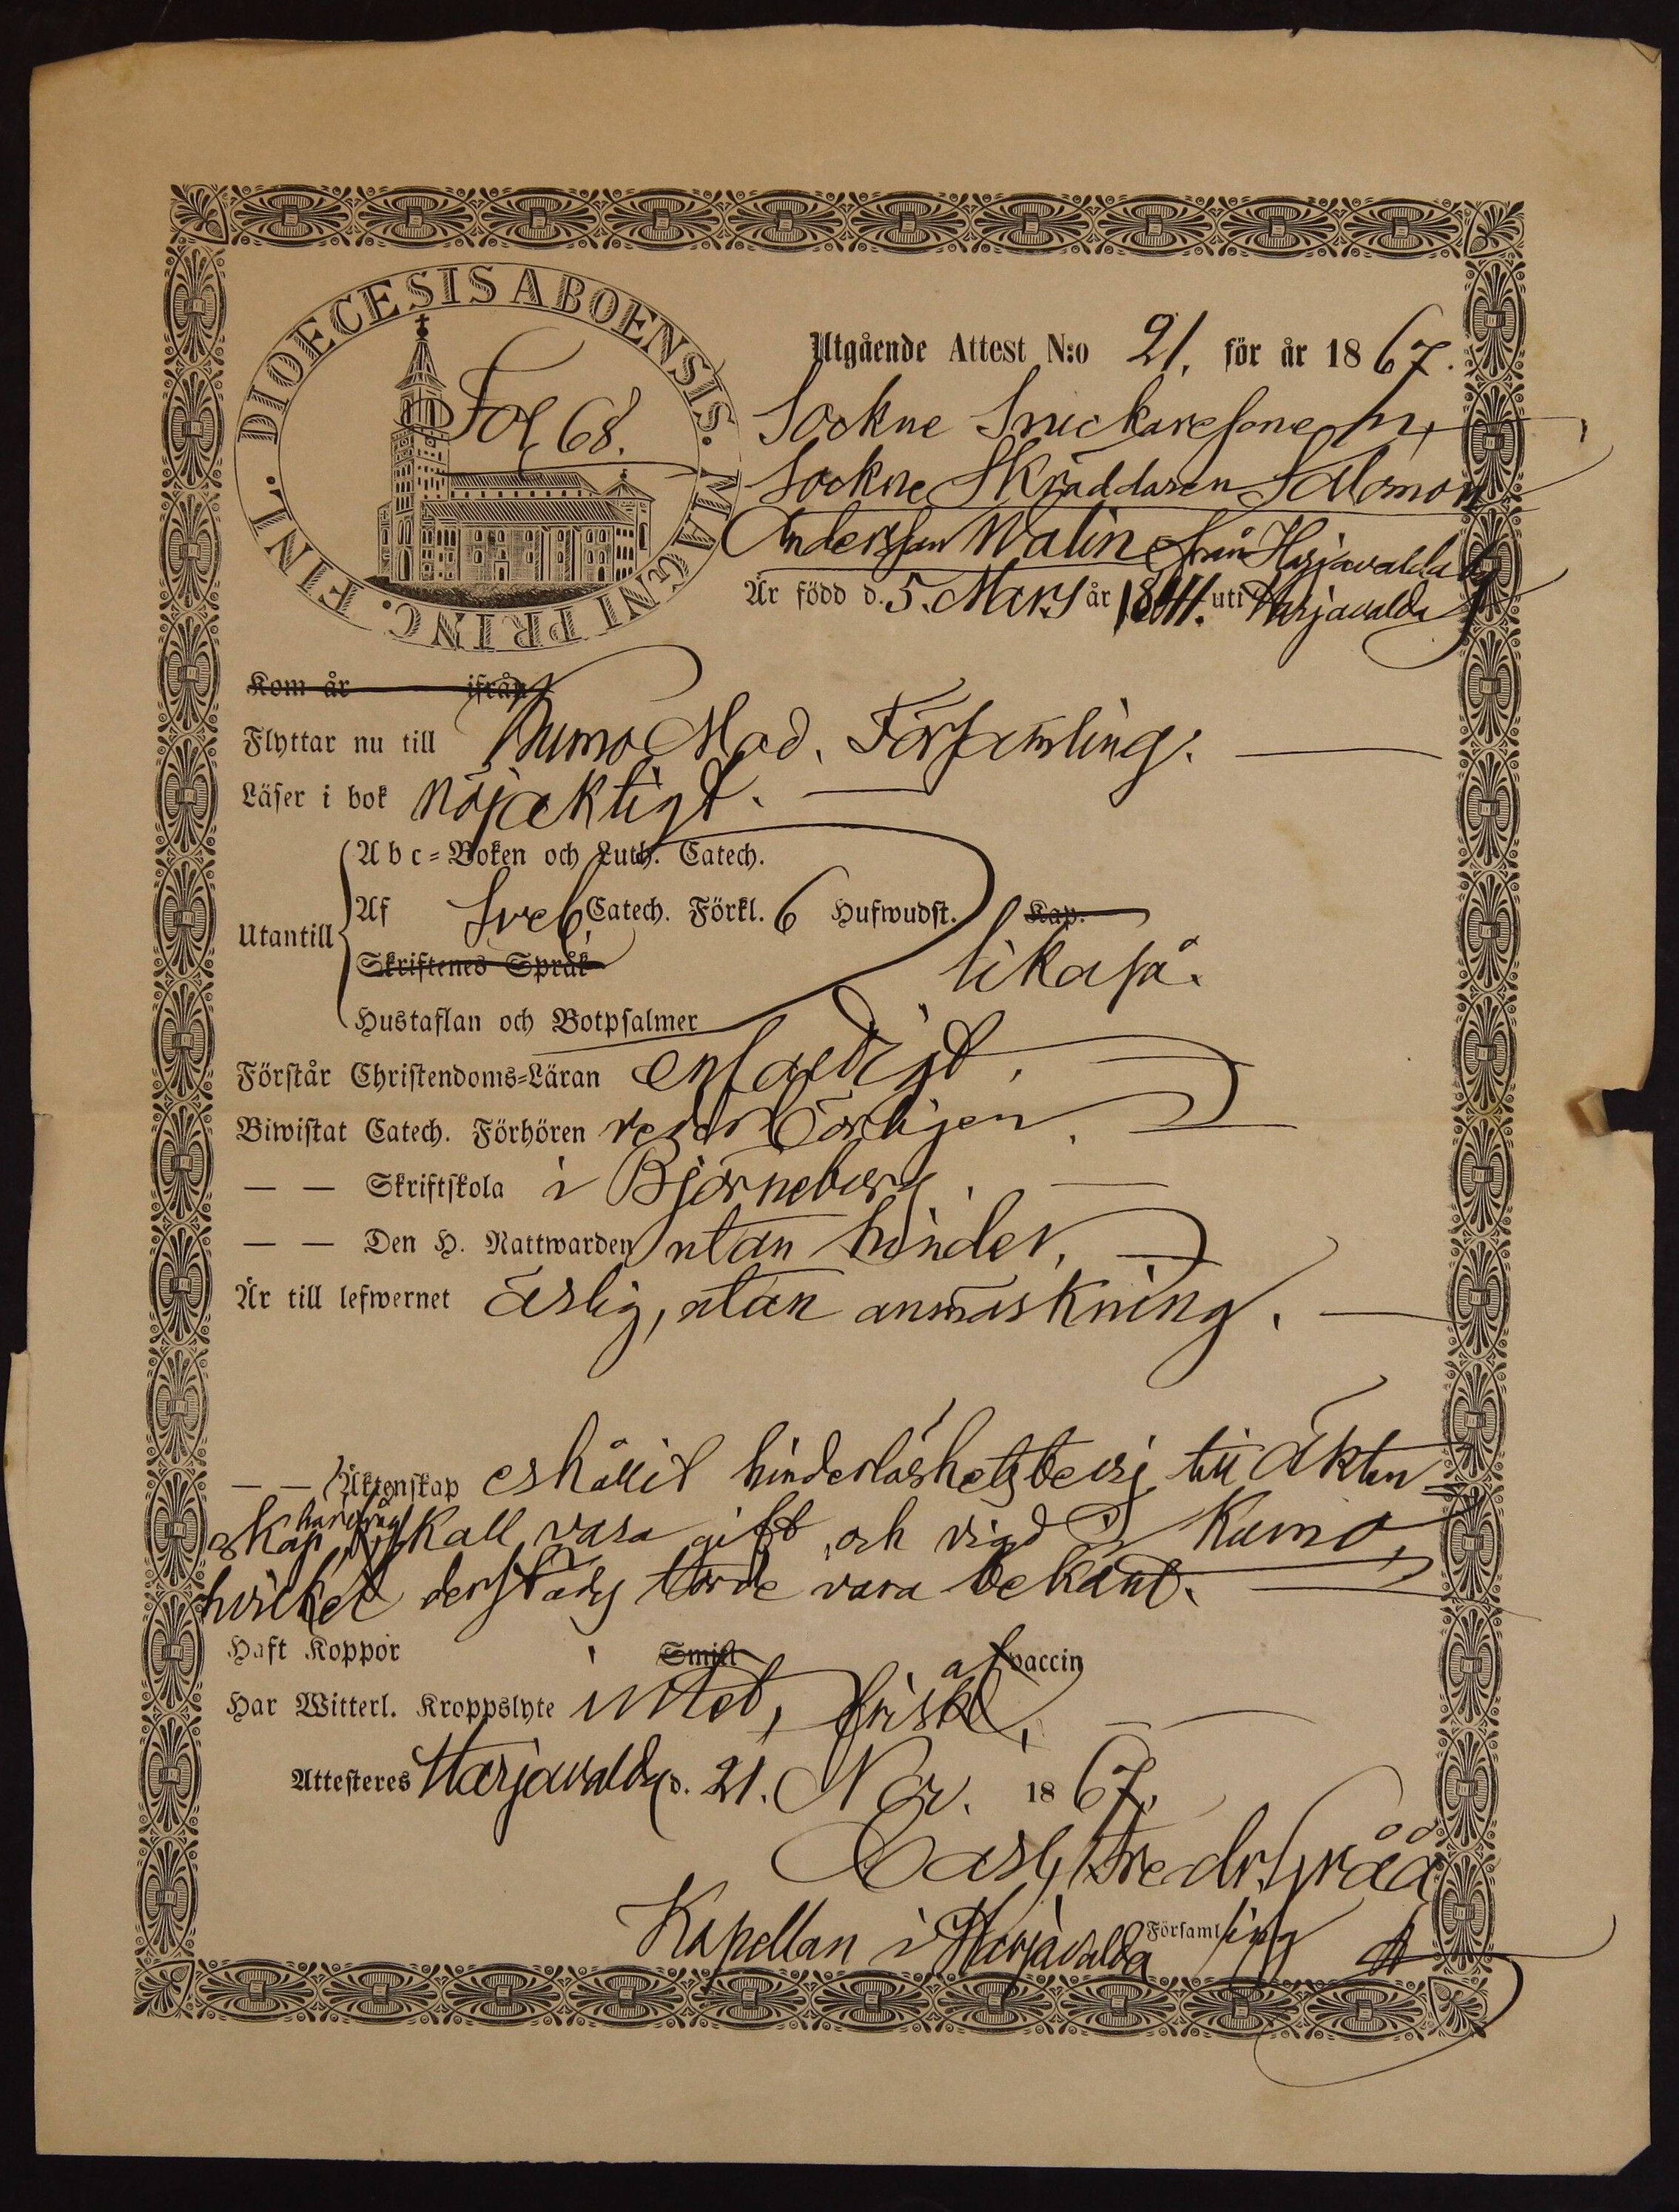 DIOECESIS ABOENSIS. MAGNI PRINC. FINL.
Fol 68.
Utgående Attest N:o 21. för år 1867.
Sockne Snickaresonen,
Sockne Skräddaren Salomon
Andersson Walin från Harjavalda by
Är född d. 5. Mars år 1841. uti Harjavalda
Kom år ifrån
Flyttar nu till Kumo Mod. Församling.
Läser i bok nöjaktigt.
Abc=Boken och Luth. Catech.
Utantill Af Sveb. Catech. Förkl. 6 Hufwudst. Kap.
Skriftenes Språk likaså.
Hustaflan och Botpsalmer
Förstår Christendoms=Läran enfaldigt.
Biwistat Catech. Förhören vederbörligen.
— — Skriftskola i Björneborg.
— — Den H. Nattwarden utan hinder.
Är till lefwernet ärlig, utan anmärkning.
— — Äktenskap erhållit hinderlöshetsbevis till äkten
skap, skall vara gift och vigd i Kumo,
hvilket derstädes torde vara bekant.
Haft Koppor Smitt af vaccin
Har Witterl. Kroppslyte intet, frisk.
Attesteres Harjavalda d. 21. Nov. 1867.
Carl Fredr. Gråå
Kapellan i Harjavalda Församling